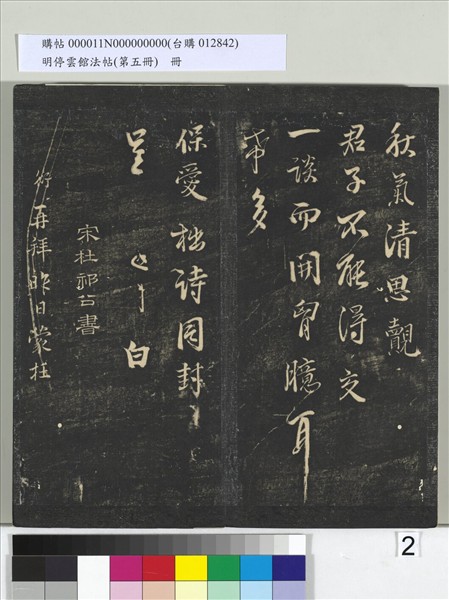 購帖 000011N000000000(台購 012842)
明停雲館法帖(第五冊)　冊
秋氣清思覿
君子不能得交
一談而開胷臆耳
希多
保愛拙詩同封
呈 白
宋杜祁公書
衍再拜昨日蒙枉
2